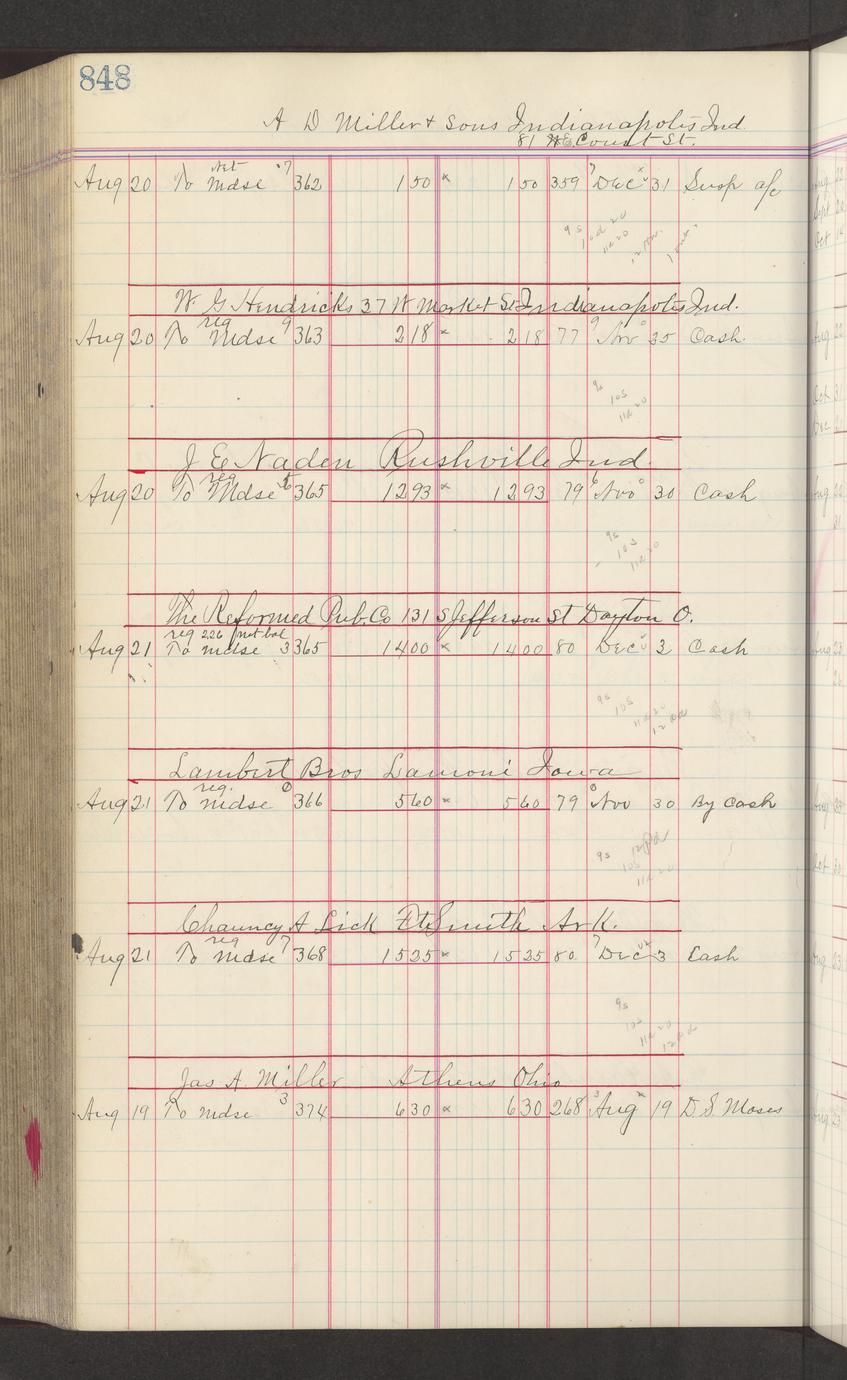 848
A D Miller & Sons Indianapolis Ind.
81 Court St.
Net
Aug 20 To Mdse 7 362 1 50 x 1 50 359 7 Dec x 31 Susp a/c
9s 10d 20 11d 20
W. G Hendricks 37 W Market St Indianapolis Ind.
reg
Aug 20 To Mdse 9 363 2 18 x 2 18 77 9 Nov 25 Cash
9s 10s 11d 20
J E Naden Rushville Ind.
reg
Aug 20 To Mdse 365 12 93 x 12 93 79 6 Nov 30 Cash
9s 10s 11d 20
The Reformed Pub. Co 131 S Jefferson St Dayton O.
reg 226 net bal
Aug 21 To mdse 3 365 14 00 x 14 00 80 Dec 3 Cash
9s 10s 11d 20
Lambert Bros Lamoni Iowa
reg.
Aug 21 To mdse 0 366 5 60 x 5 60 79 0 Nov 30 By Cash
9s 10s 11d 20
Chauncy A Lick Ft Smith Ark.
reg
Aug 21 To mdse 7 368 15 25 x 15 25 80 7 Dec 3 Cash
9s 10s 11d 20
Jas A. Miller Athens Ohio
Aug 19 To mdse 3 374 6 30 x 6 30 268 3 Aug x 19 D S Moses